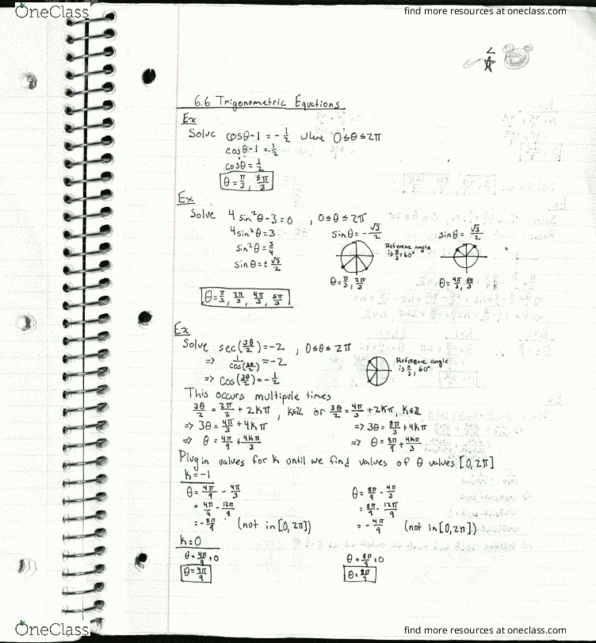 OneClass
find more resources at oneclass.com
6.6 Trigonometric Equations
Ex
Solve cosθ-1 = -1/2 where 0≤θ≤2π
cosθ-1 = -1/2
cosθ = 1/2
θ = π/3, 5π/3
Ex
Solve 4sin²θ-3=0 , 0≤θ≤2π
4sin²θ=3
sin²θ=3/4
sinθ=±√3/2
sinθ=-√3/2
Reference angle
is π/3=60°
θ=π/3, 2π/3
sinθ=√3/2
θ=4π/3, 5π/3
θ=π/3, 2π/3, 4π/3, 5π/3
Ex
Solve sec(3θ/2)=-2 , 0≤θ≤2π
=> 1/cos(3θ/2)=-2
=> cos(3θ/2)=-1/2
Reference angle
is π/3, 60°
This occurs multipole times
3θ/2=2π/3+2Kπ, K∈Z or 3θ/2=4π/3+2Kπ, K∈Z
=> 3θ=4π/3+4Kπ => 3θ=8π/3+4Kπ
=> θ=4π/9+4Kπ/3 => θ=8π/9+4Kπ/3
Plug in values for k until we find values of θ values [0,2π]
k=-1
θ=4π/9-4π/3 θ=8π/9-4π/3
=4π/9-12π/9 =8π/9-12π/9
=-8π/9 (not in [0,2π]) =-4π/9 (not in [0,2π])
k=0
θ=4π/9+0 θ=8π/9+0
θ=4π/9 θ=8π/9
OneClass
find more resources at oneclass.com